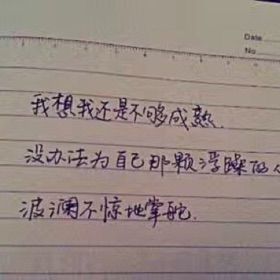 Date
No
我想我还是不够成熟.
没办法为自己那颗浮躁的
波澜不惊地掌舵.